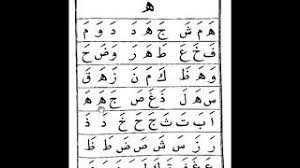 ه
هَ مَ شَ جَ هَ دَ دَ وَ مَ
فَ خَ عَ طَ هَ رَ وَ ضَ حَ
وَ هَ ظَ كَ مَ نَ زَ هَ قَ
سَ هَ لَ دَ غَ صَ جَ هَ هَ
أَ بَ تَ ثَ جَ حَ خَ دَ ذَ
رَ زَ سَ شَ صَ ضَ طَ